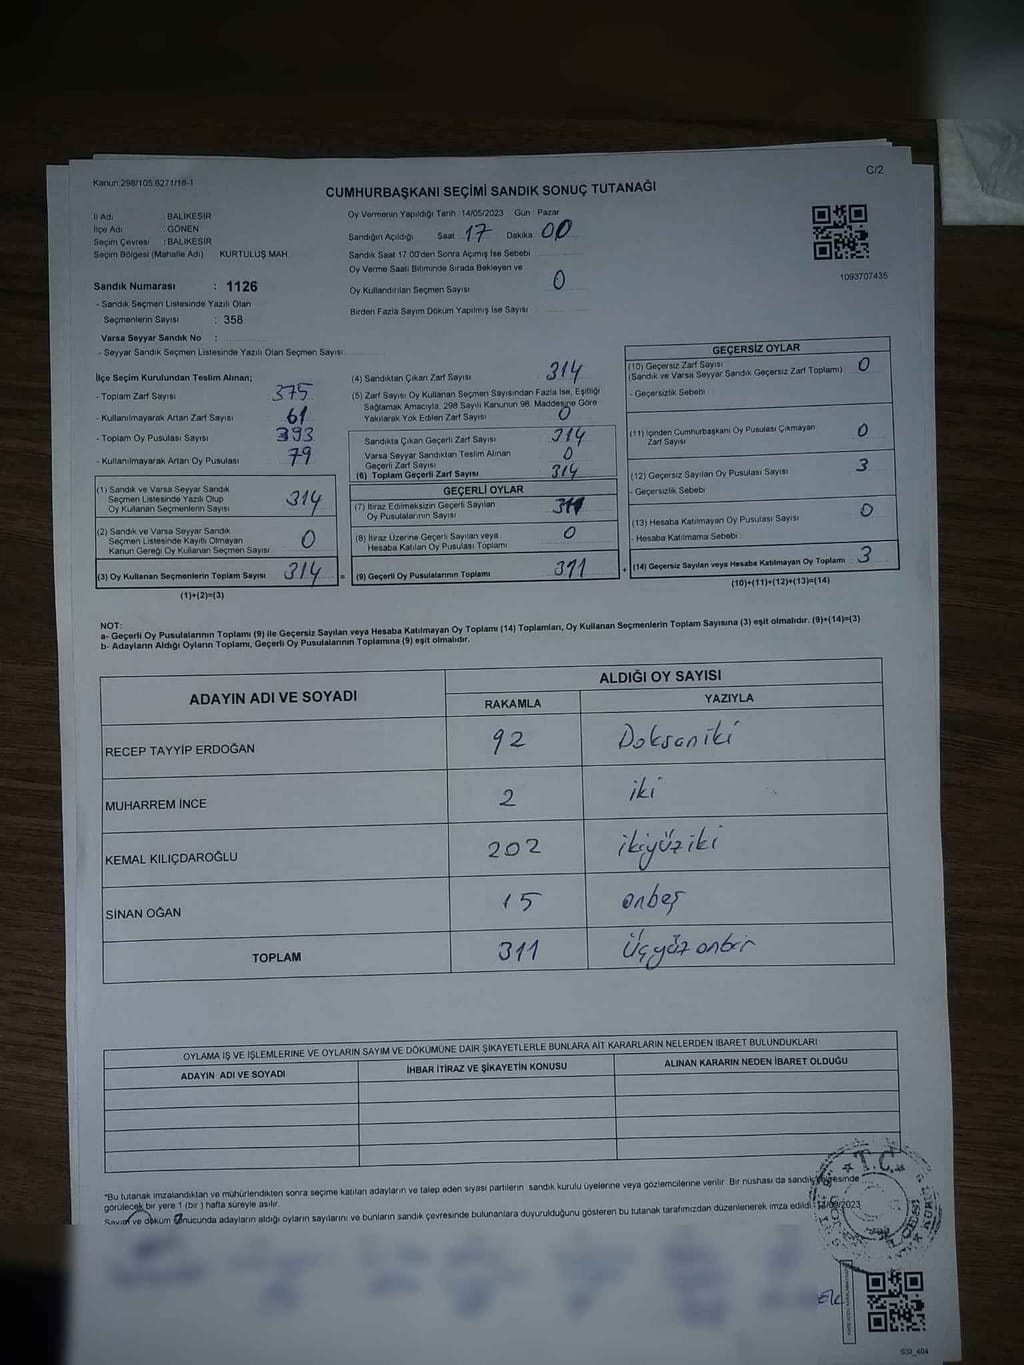 Kanun:298/105,6271/18-1
C/2
CUMHURBAŞKANI SEÇİMİ SANDIK SONUÇ TUTANAĞI
İl Adı : BALIKESİR
İlçe Adı : GÖNEN
Seçim Çevresi : BALIKESİR
Seçim Bölgesi (Mahalle Adı) KURTULUŞ MAH
Oy Vermenin Yapıldığı Tarih : 14/05/2023 Gün : Pazar
Sandığın Açıldığı Saat 17 Dakika 00
Sandık Saat 17.00'den Sonra Açımış İse Sebebi
Oy Verme Saati Bitiminde Sırada Bekleyen ve
Oy Kullandırılan Seçmen Sayısı 0
Birden Fazla Sayım Döküm Yapılmış İse Sayısı
1093707435
Sandık Numarası : 1126
- Sandık Seçmen Listesinde Yazılı Olan
Seçmenlerin Sayısı : 358
Varsa Seyyar Sandık No :
- Seyyar Sandık Seçmen Listesinde Yazılı Olan Seçmen Sayısı
İlçe Seçim Kurulundan Teslim Alınan;
- Toplam Zarf Sayısı 375
- Kullanılmayarak Artan Zarf Sayısı 61
- Toplam Oy Pusulası Sayısı 393
- Kullanılmayarak Artan Oy Pusulası 79
(1) Sandık ve Varsa Seyyar Sandık
Seçmen Listesinde Yazılı Olup
Oy Kullanan Seçmenlerin Sayısı 314
(2) Sandık ve Varsa Seyyar Sandık
Seçmen Listesinde Kayıtlı Olmayan
Kanun Gereği Oy Kullanan Seçmen Sayısı 0
(3) Oy Kullanan Seçmenlerin Toplam Sayısı 314 =
(1)+(2)=(3)
(4) Sandıktan Çıkan Zarf Sayısı 314
(5) Zarf Sayısı Oy Kullanan Seçmen Sayısından Fazla İse, Eşitliği
Sağlamak Amacıyla 298 Sayılı Kanunun 98. Maddesine Göre
Yakılarak Yok Edilen Zarf Sayısı 0
Sandıkta Çıkan Geçerli Zarf Sayısı 314
Varsa Seyyar Sandıktan Teslim Alınan
Geçerli Zarf Sayısı 0
(6) Toplam Geçerli Zarf Sayısı 314
GEÇERLİ OYLAR
(7) İtiraz Edilmeksizin Geçerli Sayılan
Oy Pusulalarının Sayısı 311
(8) İtiraz Üzerine Geçerli Sayılan veya
Hesaba Katılan Oy Pusulası Toplamı 0
(9) Geçerli Oy Pusulalarının Toplamı 311 +
GEÇERSİZ OYLAR
(10) Geçersiz Zarf Sayısı 0
(Sandık ve Varsa Seyyar Sandık Geçersiz Zarf Toplamı)
- Geçersizlik Sebebi
(11) İçinden Cumhurbaşkanı Oy Pusulası Çıkmayan
Zarf Sayısı 0
(12) Geçersiz Sayılan Oy Pusulası Sayısı 3
- Geçersizlik Sebebi
(13) Hesaba Katılmayan Oy Pusulası Sayısı 0
- Hesaba Katılmama Sebebi
(14) Geçersiz Sayılan veya Hesaba Katılmayan Oy Toplamı 3
(10)+(11)+(12)+(13)=(14)
NOT:
a- Geçerli Oy Pusulalarının Toplamı (9) ile Geçersiz Sayılan veya Hesaba Katılmayan Oy Toplamı (14) Toplamları, Oy Kullanan Seçmenlerin Toplam Sayısına (3) eşit olmalıdır. (9)+(14)=(3)
b- Adayların Aldığı Oyların Toplamı, Geçerli Oy Pusulalarının Toplamına (9) eşit olmalıdır.
ADAYIN ADI VE SOYADI ALDIĞI OY SAYISI
RAKAMLA YAZIYLA
RECEP TAYYİP ERDOĞAN 92 Doksaniki
MUHARREM İNCE 2 iki
KEMAL KILIÇDAROĞLU 202 ikiyüziki
SİNAN OĞAN 15 onbeş
TOPLAM 311 Üçyüz onbir
OYLAMA İŞ VE İŞLEMLERİNE VE OYLARIN SAYIM VE DÖKÜMÜNE DAİR ŞİKAYETLERLE BUNLARA AİT KARARLARIN NELERDEN İBARET BULUNDUKLARI
ADAYIN ADI VE SOYADI İHBAR İTİRAZ VE ŞİKAYETİN KONUSU ALINAN KARARIN NEDEN İBARET OLDUĞU
"Bu tutanak imzalandıktan ve mühürlendikten sonra seçime katılan adayların ve talep eden siyasi partilerin sandık kurulu üyelerine veya gözlemcilerine verilir. Bir nüshası da sandık çevresinde
görülecek bir yere 1 (bir) hafta süreyle asılır.
Sayım ve döküm sonucunda adayların aldığı oyların sayılarını ve bunların sandık çevresinde bulunanlara duyurulduğunu gösteren bu tutanak tarafımızdan düzenlenerek imza edildi.
T.C.
SSI_404